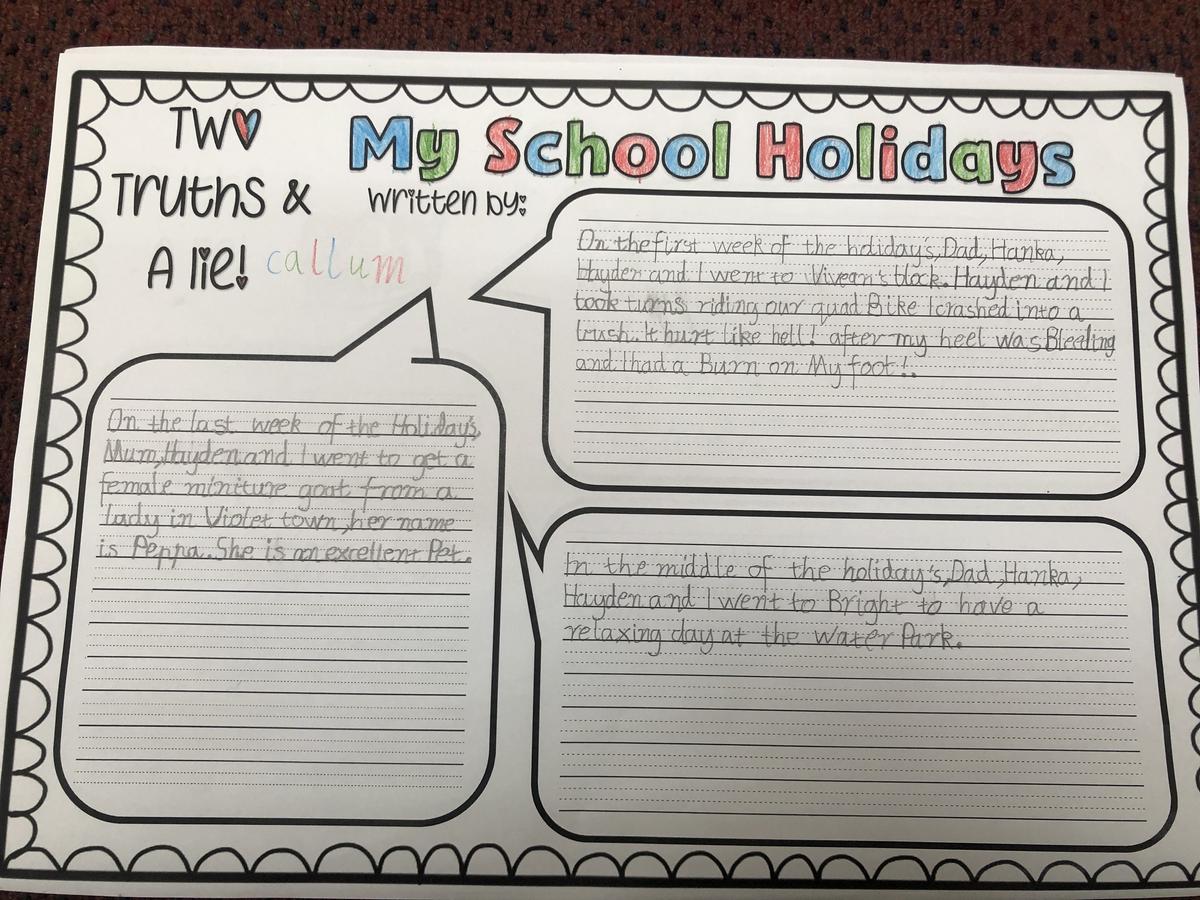 TWO
Truths &
A lie!
My School Holidays
written by:
callum
On the first week of the holiday's, Dad, Hanka,
Hayden and I went to Vivean's block. Hayden and I
took turns riding our quad Bike I crashed into a
trush. It hurt like hell! after my heel was Bleeding
and I had a Burn on My foot!.
On the last week of the Holiday's,
Mum, Hayden and I went to get a
female miniture goat from a
lady in Violet town, her name
is Peppa. She is an excellent Pet.
In the middle of the holiday's, Dad, Hanka,
Hayden and I went to Bright to have a
relaxing day at the water Park.